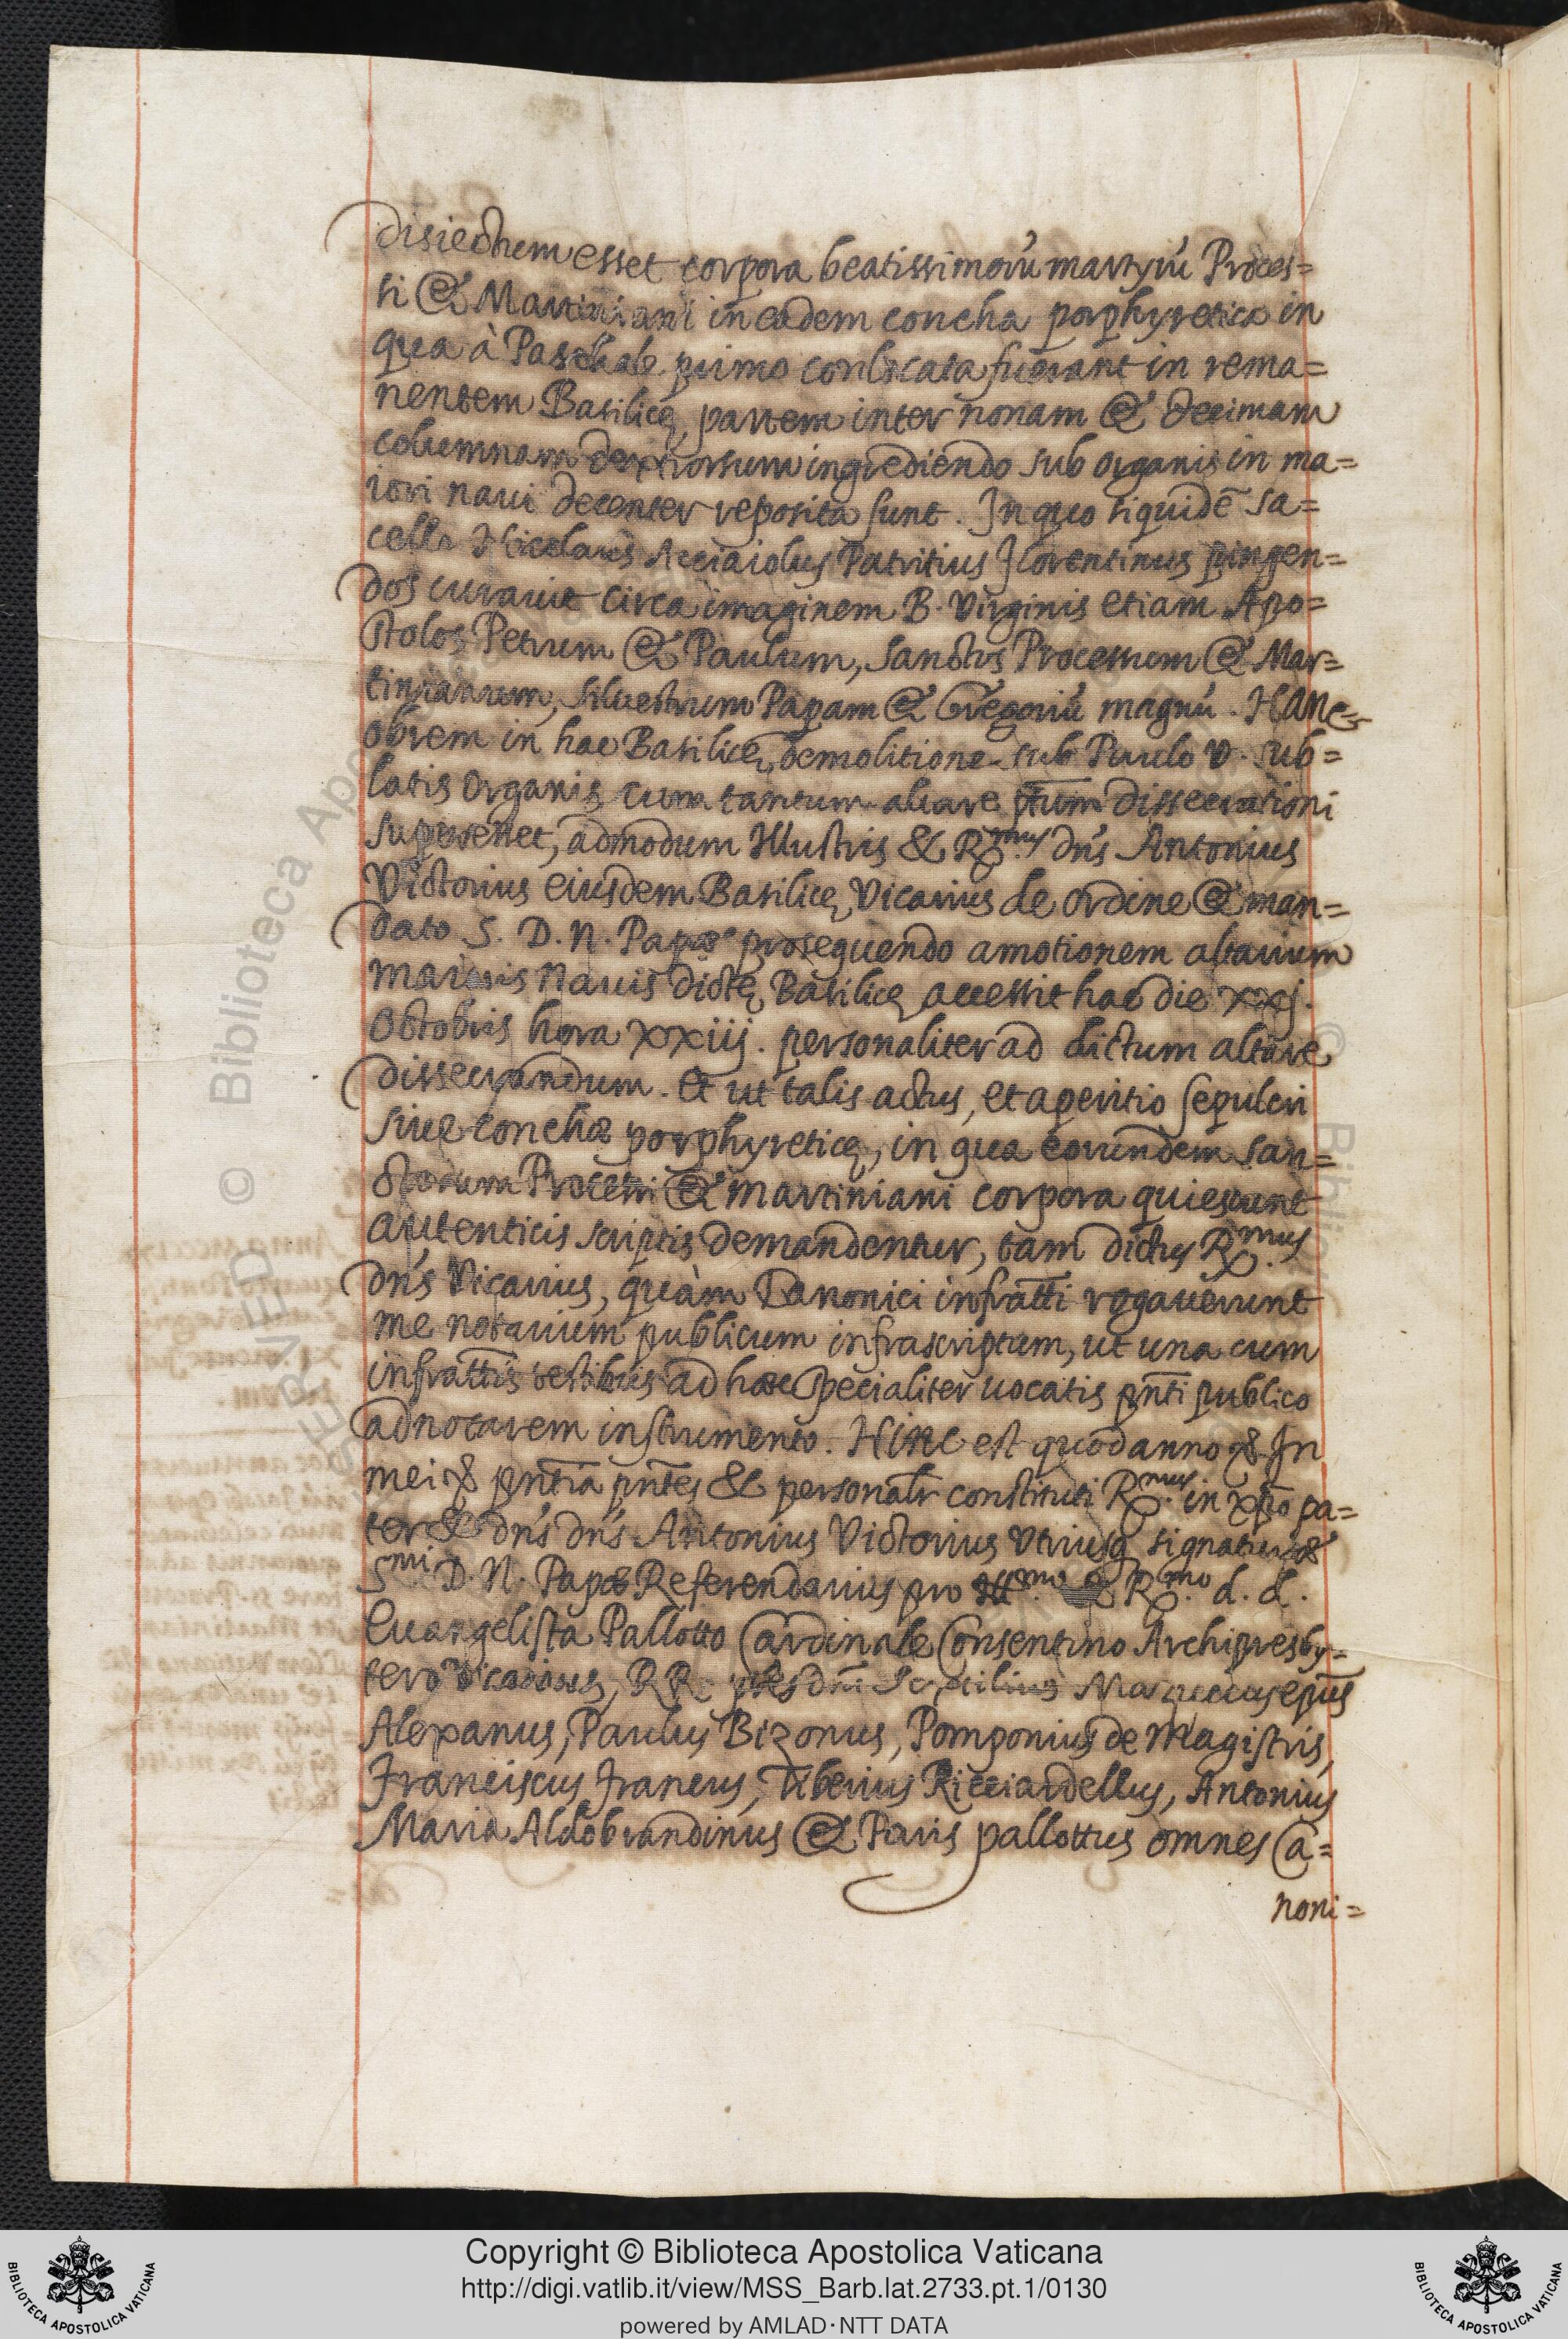 disiectum esset corpora beatissimorũ martyrũ Proces=
si & Martiniani in eadem concha porphyretica in
qua à Paschale primo conlocata fuerant in rema=
nentem Basilicę partem inter nonam & decimam
columnam dextrorsum ingrediendo sub organis in ma=
iori naui decenter reposita sunt. In quo siquidē sa=
cello Nicolaus Acciaiolus Patritius Florentinus pingen=
dos curauit circa imaginem B. Virginis etiam Apo=
stolos Petrum & Paulum, Sanctos Processum & Mar=
tinianum, Siluestrum Papam & Gregoriũ magnũ. HANC
obrem in hac Basilicę demolitione sub Paulo V. sub=
latis organis cum tantum altare p̃tum dissecrationi
superesset, admodum Illustris & R.mus dn̄s Antonius
Victorius eiusdem Basilicę Vicarius de ordine & man=
dato S. D. N. Papæ prosequendo amotionem altarium
maioris nauis dictę Basilicę accessit hac die xxj.
Octobris hora xxiij. personaliter ad dictum altare
dissecrandum. Et ut talis actus, et aperitio sepulcri
siue conchæ porphyreticę, in qua eorundem san=
ctorum Processi & Martiniani corpora quiescunt
autenticis scriptis demandentur, tam dictus R.mus
dn̄s Vicarius, quàm Canonici infratti rogauerunt
me notarium publicum infrascriptum, ut una cum
infrattis testibus ad hæc specialiter uocatis pn̄ti publico
adnotarem instrumento. HINC est quod anno & In
mei & pn̄tia pn̄tes & personalr constituti R.mus in xp̄o pa=
ter & dn̄s dn̄s Antonius Victorius Vtriusq signaturæ
Smi D. N. Papæ Referendarius pro Ill.mo & R.mo d. d.
Euangelista Pallotto Cardinale Consentino Archipresby=
tero Vicarius, RR. p̃tes dn̄i epũs
Alexanus, Paulus Bizonus, Pomponius de Magistris,
Franciscus Francus, Tiberius Ricciardellus, Antonius
Maria Aldobrandinus & Paris Pallottus omnes Ca=
noni=
Copyright © Biblioteca Apostolica Vaticana
http://digi.vatlib.it/view/MSS_Barb.lat.2733.pt.1/0130
powered by AMLAD·NTT DATA
BIBLIOTECA APOSTOLICA VATICANA
BIBLIOTECA APOSTOLICA VATICANA